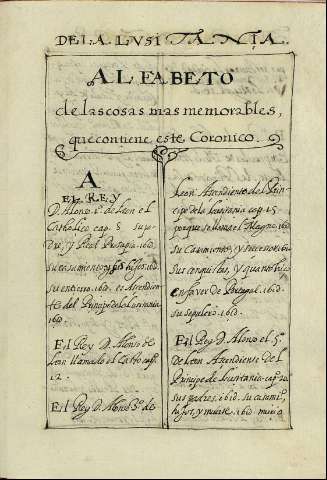 DE LA LUSITANIA.
ALFABETO
de las cosas mas memorables,
que contiene este Coronico.
A
EL REY
D. Alonso 1º de Leon el
Catholico cap. 5 su pa-
dre, y Real Prosapia. ibid.
su casamiento, ibid. hijos, ibid.
su entierro. ibid. es Ascendien-
te del Principe de la Lusitania.
ibid.
El Rey D. Alonso de
Leon llamado el Casto cap.
12.
El Rey D. Alonso 3º de
Leon Ascendiente del Prin-
cipe de la Lusitania cap. 15
porque se llamo el Magno. ibid.
su Casamiento, y sucession. ibid.
sus conquistas, y quanto hizo
en favor de Portugal. ibid.
su sepulcro. ibid.
El Rey D. Alonso el 5º
de Leon Ascendiente del
Principe de Lusitania cap. 20.
sus padres. ibid. su casamiº.
hijos, y muerte. ibid. murio